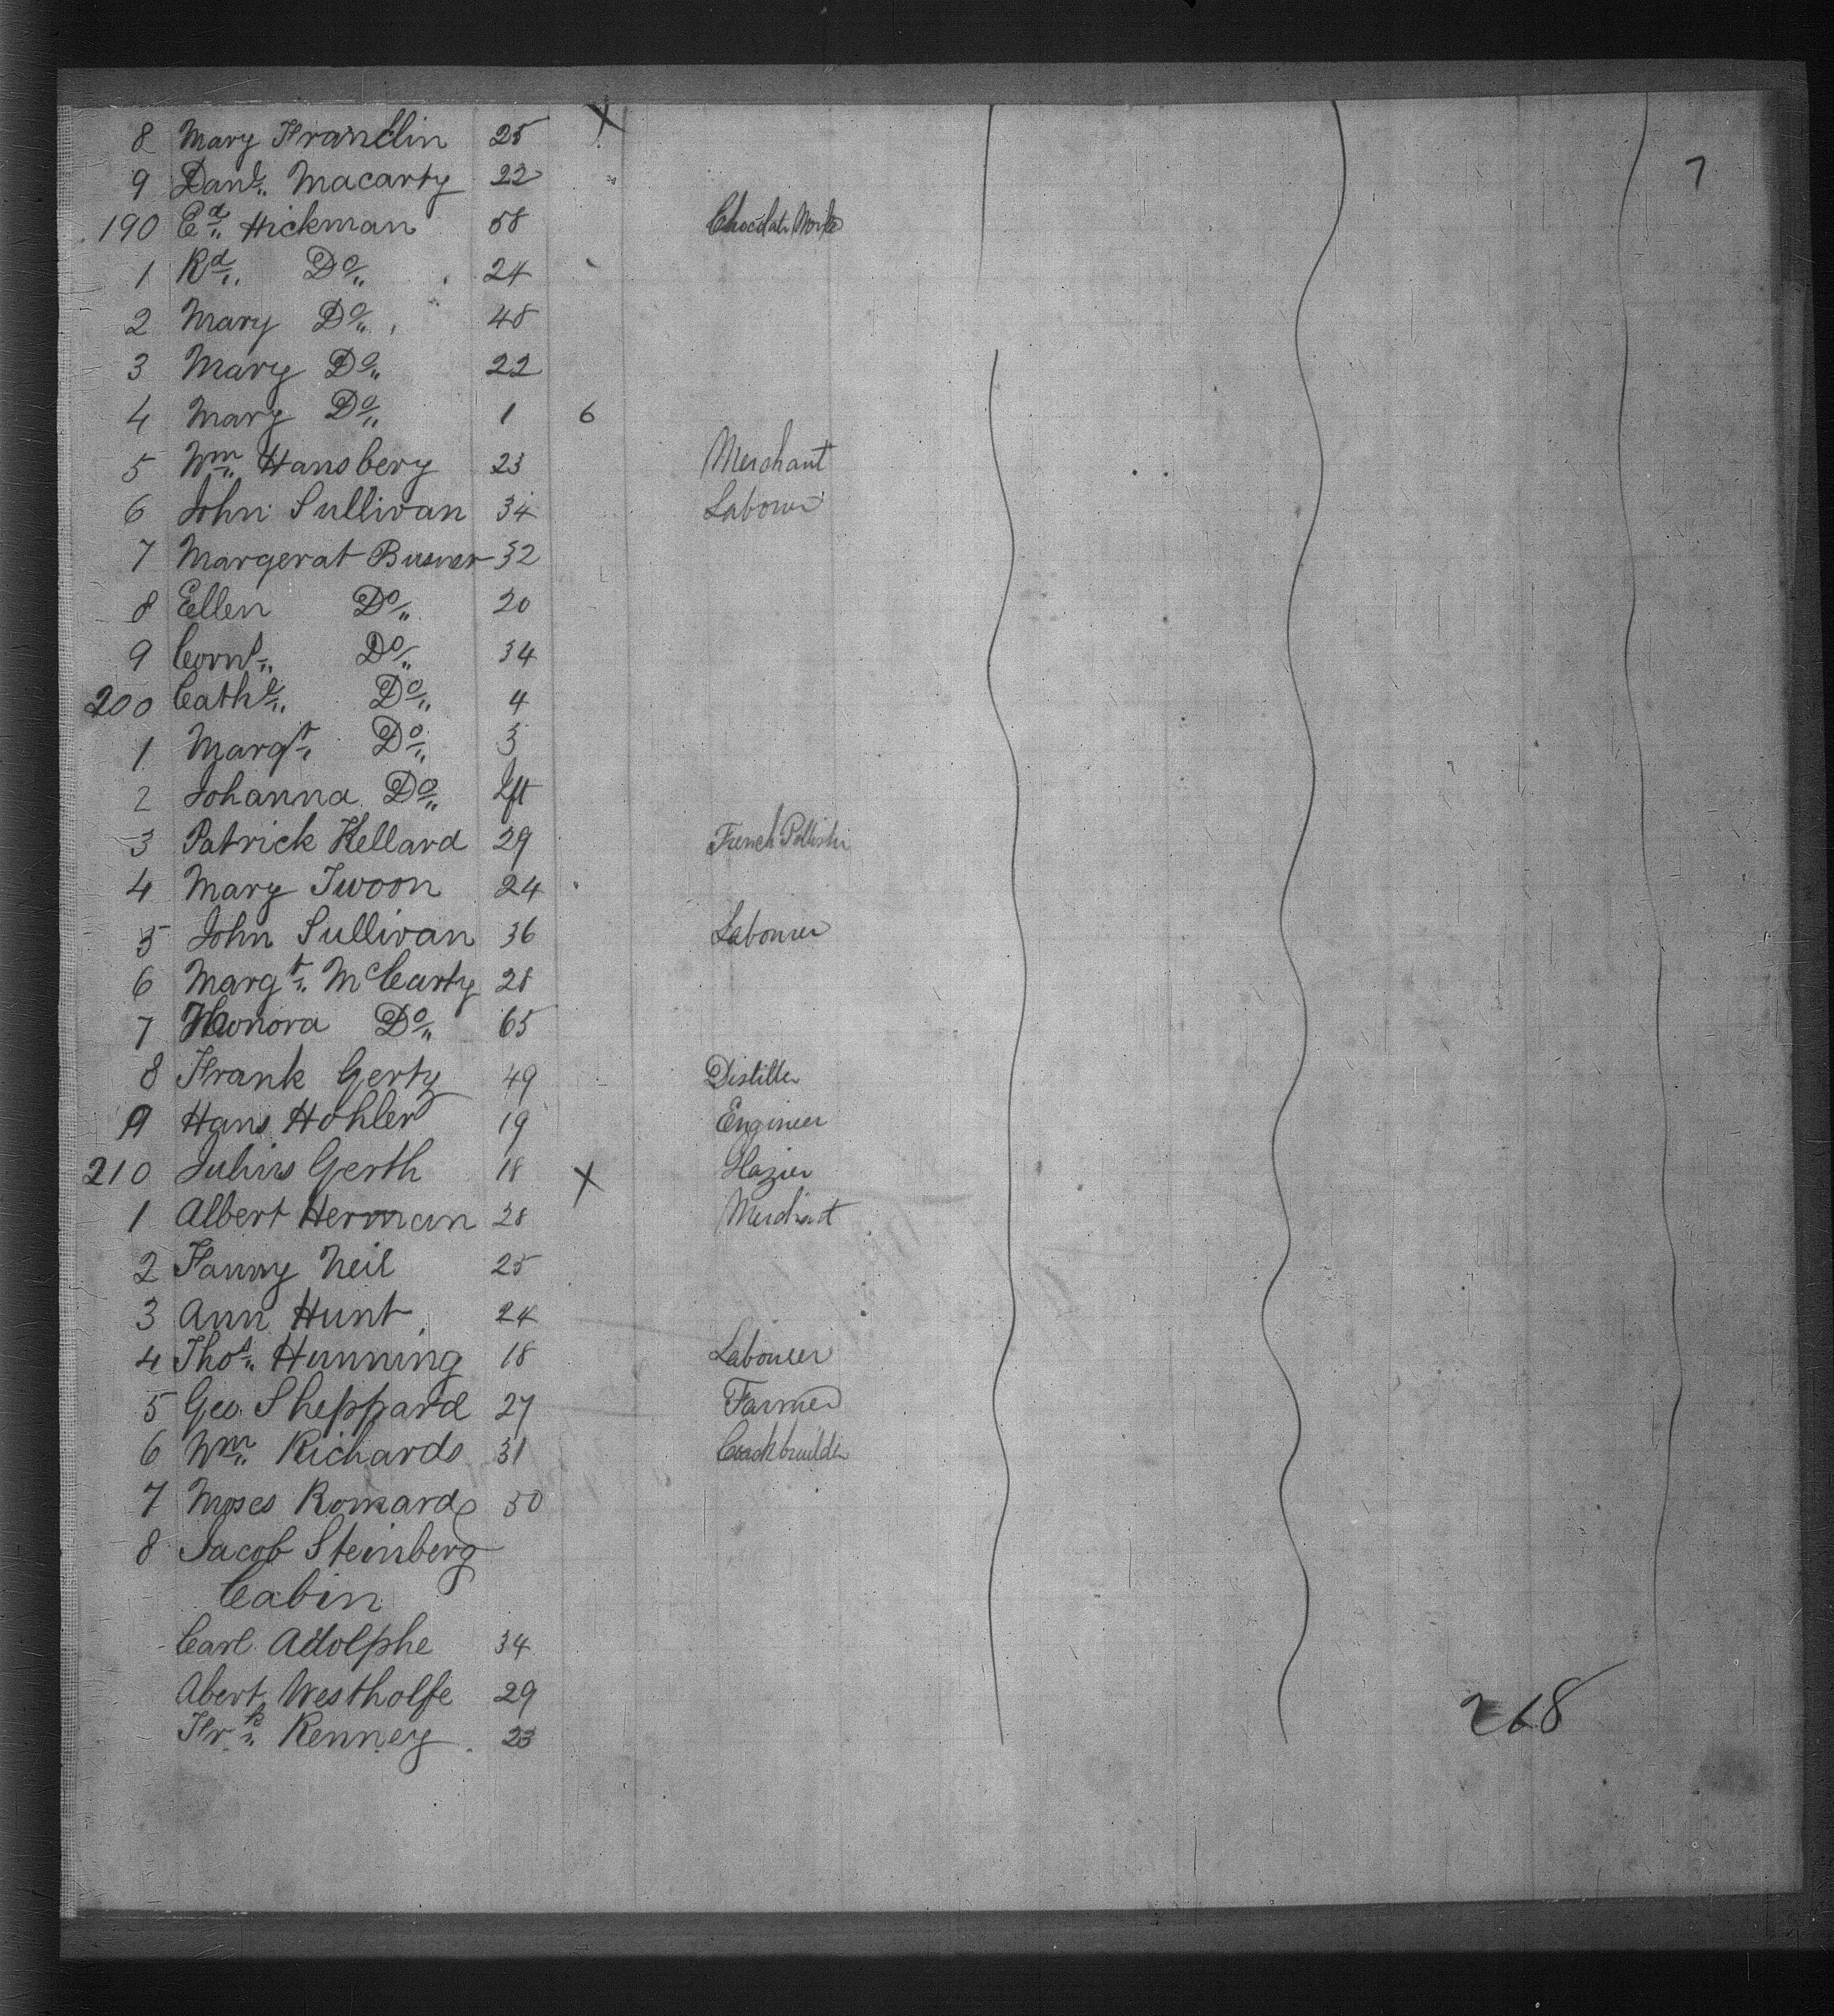 8 Mary Franclin 25 X
9 Danl. Macarty 22 7
190 Ed. Hickman 58 Chocolate Worker
1 Rd. Do. 24
2 Mary Do. 48
3 Mary Do. 22
4 Mary Do. 1 6
5 Wm. Hansbery 23 Merchant
6 John Sullivan 34 Labourer
7 Margerat 32
8 Ellen Do. 20
9 Cornl. Do. 34
200 Cathe. Do. 4
1 Margt. Do. 3
2 Johanna Do. Ift
3 Patrick Kellard 29 French Pollisher
4 Mary Twoon 24
5 John Sullivan 36 Labourer
6 Margt. McCarty 28
7 Honora Do. 65
8 Frank Gerty 49 Distiller
9 Hans Hohler 19 Engineer
210 Julius Gerth 18 X Glazier
1 Albert Herman 28 Merchant
2 Fanny Neil 25
3 Ann Hunt 24
4 Thos. Hunning 18 Labourer
5 Geo. Sheppard 27 Farmer
6 Wm. Richards 31 Coachbuilder
7 Moses 30
8 Jacob Steinberg
Cabin
Carl Adolphe 34
Abert Westholfe 29
Frk. Kenney 23
268